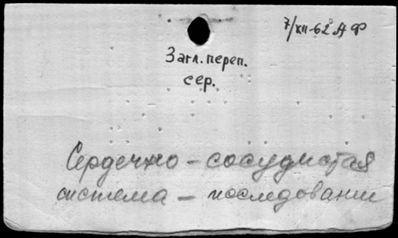 7/XII-62 А Ф
Загл. переп.
сер.
Сердечно - сосудистая
система - последовании